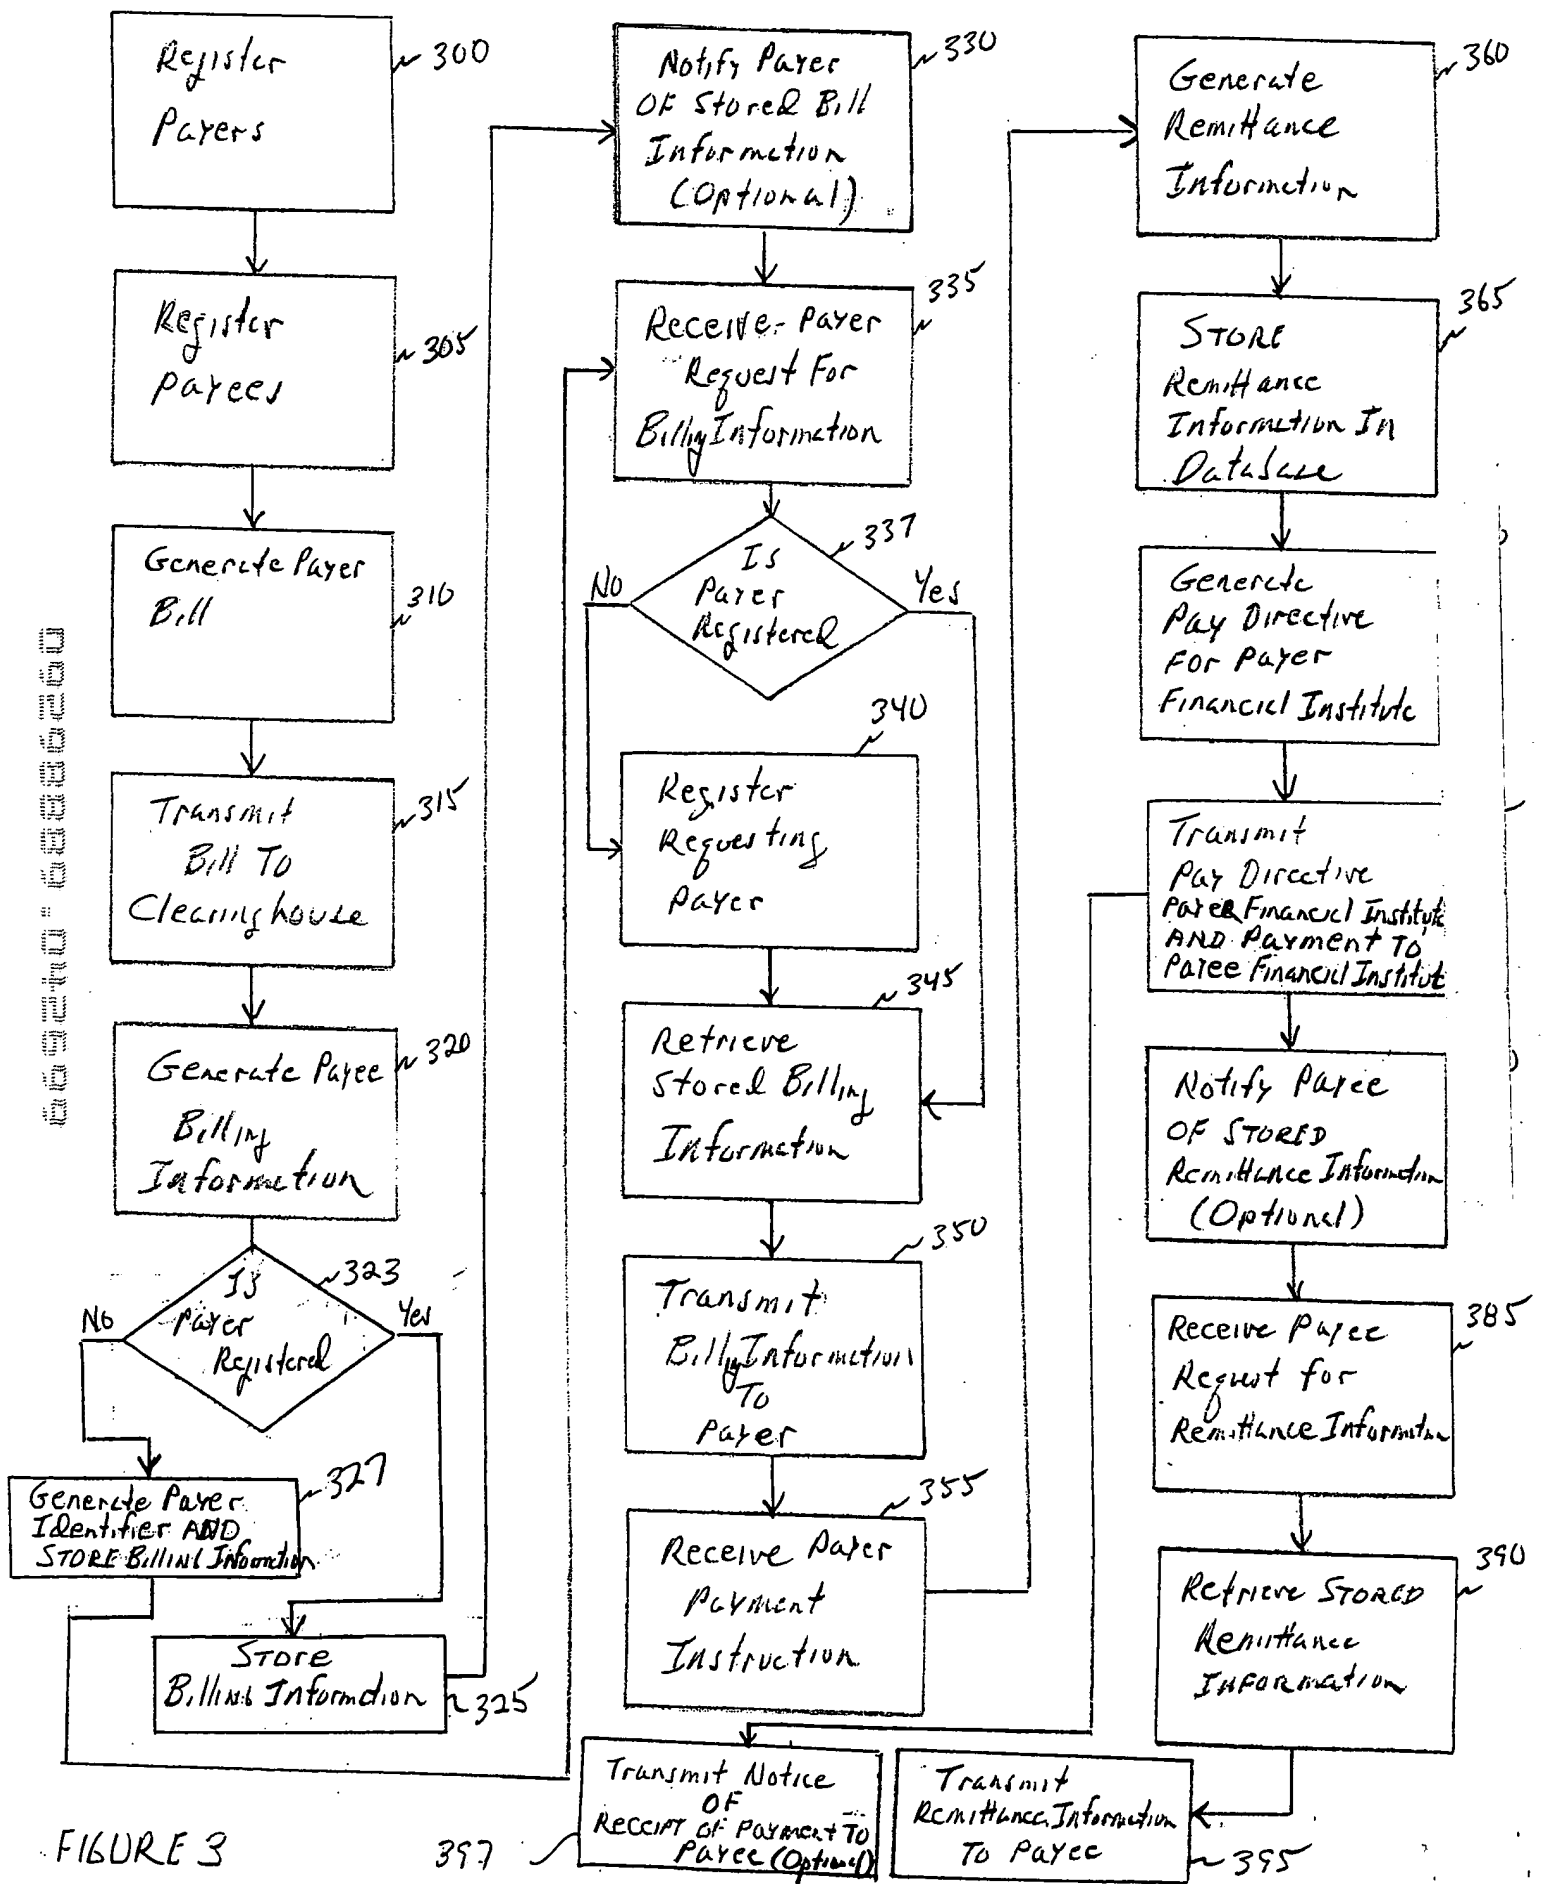 Register
Payers
300
Register
Payees
305
Generate Payer
Bill
310
Transmit
Bill To
Clearinghouse
315
Generate Payee
Billing
Information
320
Is
Payer
Registered
323
No
Yes
Generate Payer
Identifier AND
STORE Billing Information
327
Store
Billing Information
325
Notify Payer
OF Stored Bill
Information
(Optional)
330
Receive Payer
Request For
Billing Information
335
Is
Payer
Registered
337
No
Yes
Register
Requesting
Payer
340
Retrieve
Stored Billing
Information
345
Transmit
Billing Information
To
Payer
350
Receive Payer
Payment
Instruction
355
Generate
Remittance
Information
360
STORE
Remittance
Information In
Database
365
Generate
Pay Directive
For Payer
Financial Institute
Transmit
Pay Directive
Payer Financial Institute
AND Payment To
Payee Financial Institut
Notify Payee
OF STORED
Remittance Information
(Optional)
Receive Payee
Request for
Remittance Information
385
Retrieve STORED
Remittance
INFORMATION
390
Transmit
Remittance Information
To Payee
395
Transmit Notice
OF
RECEIPT OF PAYMENT TO
Payee (Optional)
397
FIGURE 3